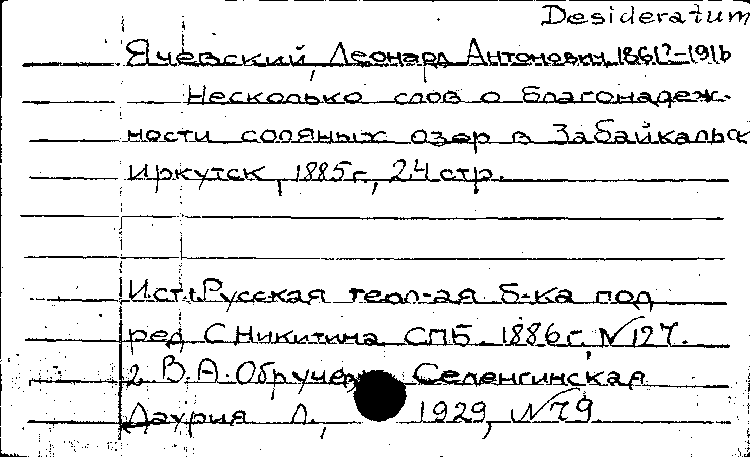 Desideratum
Ячевский, Леонард Антонович, 1861?-1916
Несколько слов о благонадеж-
ности соляных озер в Забайкальск
Иркутск, 1885 г., 24 стр.
Ист.1.Русская геол-ая б-ка под
ред С Никитина СПБ. 1886 г. №127.
2. В.А. Обручев Селенгинская
Даурия Л., 1929, №79.